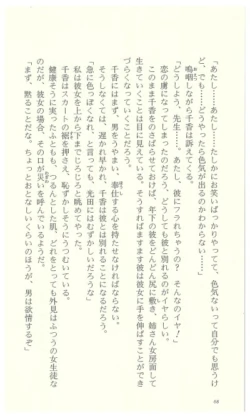 「あたし……あたし……たしかにお笑いばっかりやってて、色気ないって自分でも思うけ
ど、でも……どうやったら色気が出るのかわからない……」
嗚咽しながら千香は訴えてくる。
「どうしよう、先生……。あたし、彼にフラれちゃうの？　そんなのイヤ！」
恋の虜になってしまったのだろう。どうしても彼と別れるのがイヤなようだ。
このまま千香をのさばらせておけば、年下の彼をどんどん尻に敷き、姉さん女房面して
生きていくことは目に見えている。そうすればますます彼は彼女に手を伸ばすことができ
づらくなっていくことだろう。
千香にはまず、男をうやまい、奉仕する心を持たせなければならない。
そうしなくては、遅かれ早かれ、千香は彼とは別れることになるだろう。
「急に色っぽくなれ、と言っても、光田にはむずかしいだろうな」
私は彼女を上から下までじろじろと眺めてやった。
千香はスカートの裾を押さえ、恥ずかしそうにうつむいている。
健康そうに実ったふともも、つるんとした肌、どれをとっても外見はふつうの女生徒な
のだが、彼女の場合、その口が災いを呼んでいるようだ。
「まず、黙ることだな。ちょっとおとなしいくらいのほうが、男は欲情するぞ」
68